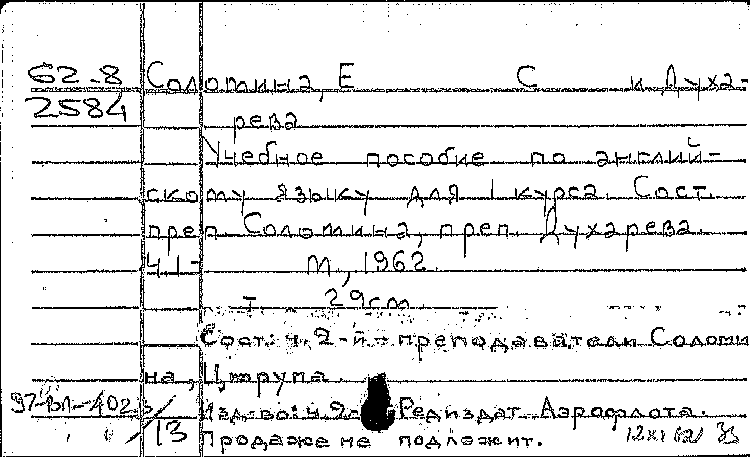 62-8 Соломина, Е С и Духа-
2584 рева
Учебное пособие по англий-
скому языку для 1 курса. Сост.
преп. Соломина, преп. Духарева.
Ч. 1- М., 1962.
- 29 cm
Сост: ч. 2-й - преподаватели Соломи
на, Цтрупа.
97-ВЛ-402 Изд-во: ч. 2- Редиздат Аэрофлота.
13 Продаже не подложит. 12 XI 62